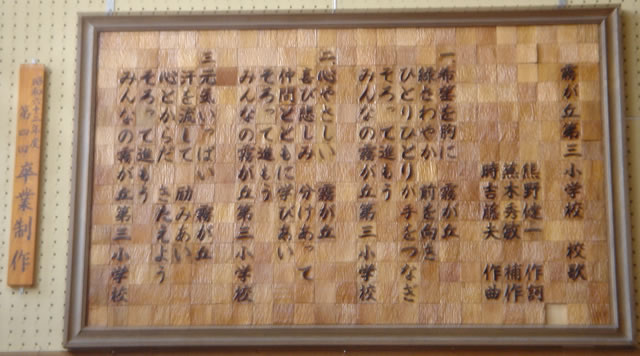 霧が丘第三小学校 校歌
熊野健一 作詞
熊木秀敏 補作
時吉藤夫 作曲
一希望を胸に 霧が丘
緑さわやか 前を向き
ひとりひとりが手をつなぎ
そろって進もう
みんなの霧が丘第三小学校
二心やさしい 霧が丘
喜び悲しみ 分けあって
仲間とともに学びあい
そろって進もう
みんなの霧が丘第三小学校
三元気いっぱい 霧が丘
汗を流して 励みあい
心とからだ きたえよう
そろって進もう
みんなの霧が丘第三小学校
昭和六十三年度
第四回 卒業制作